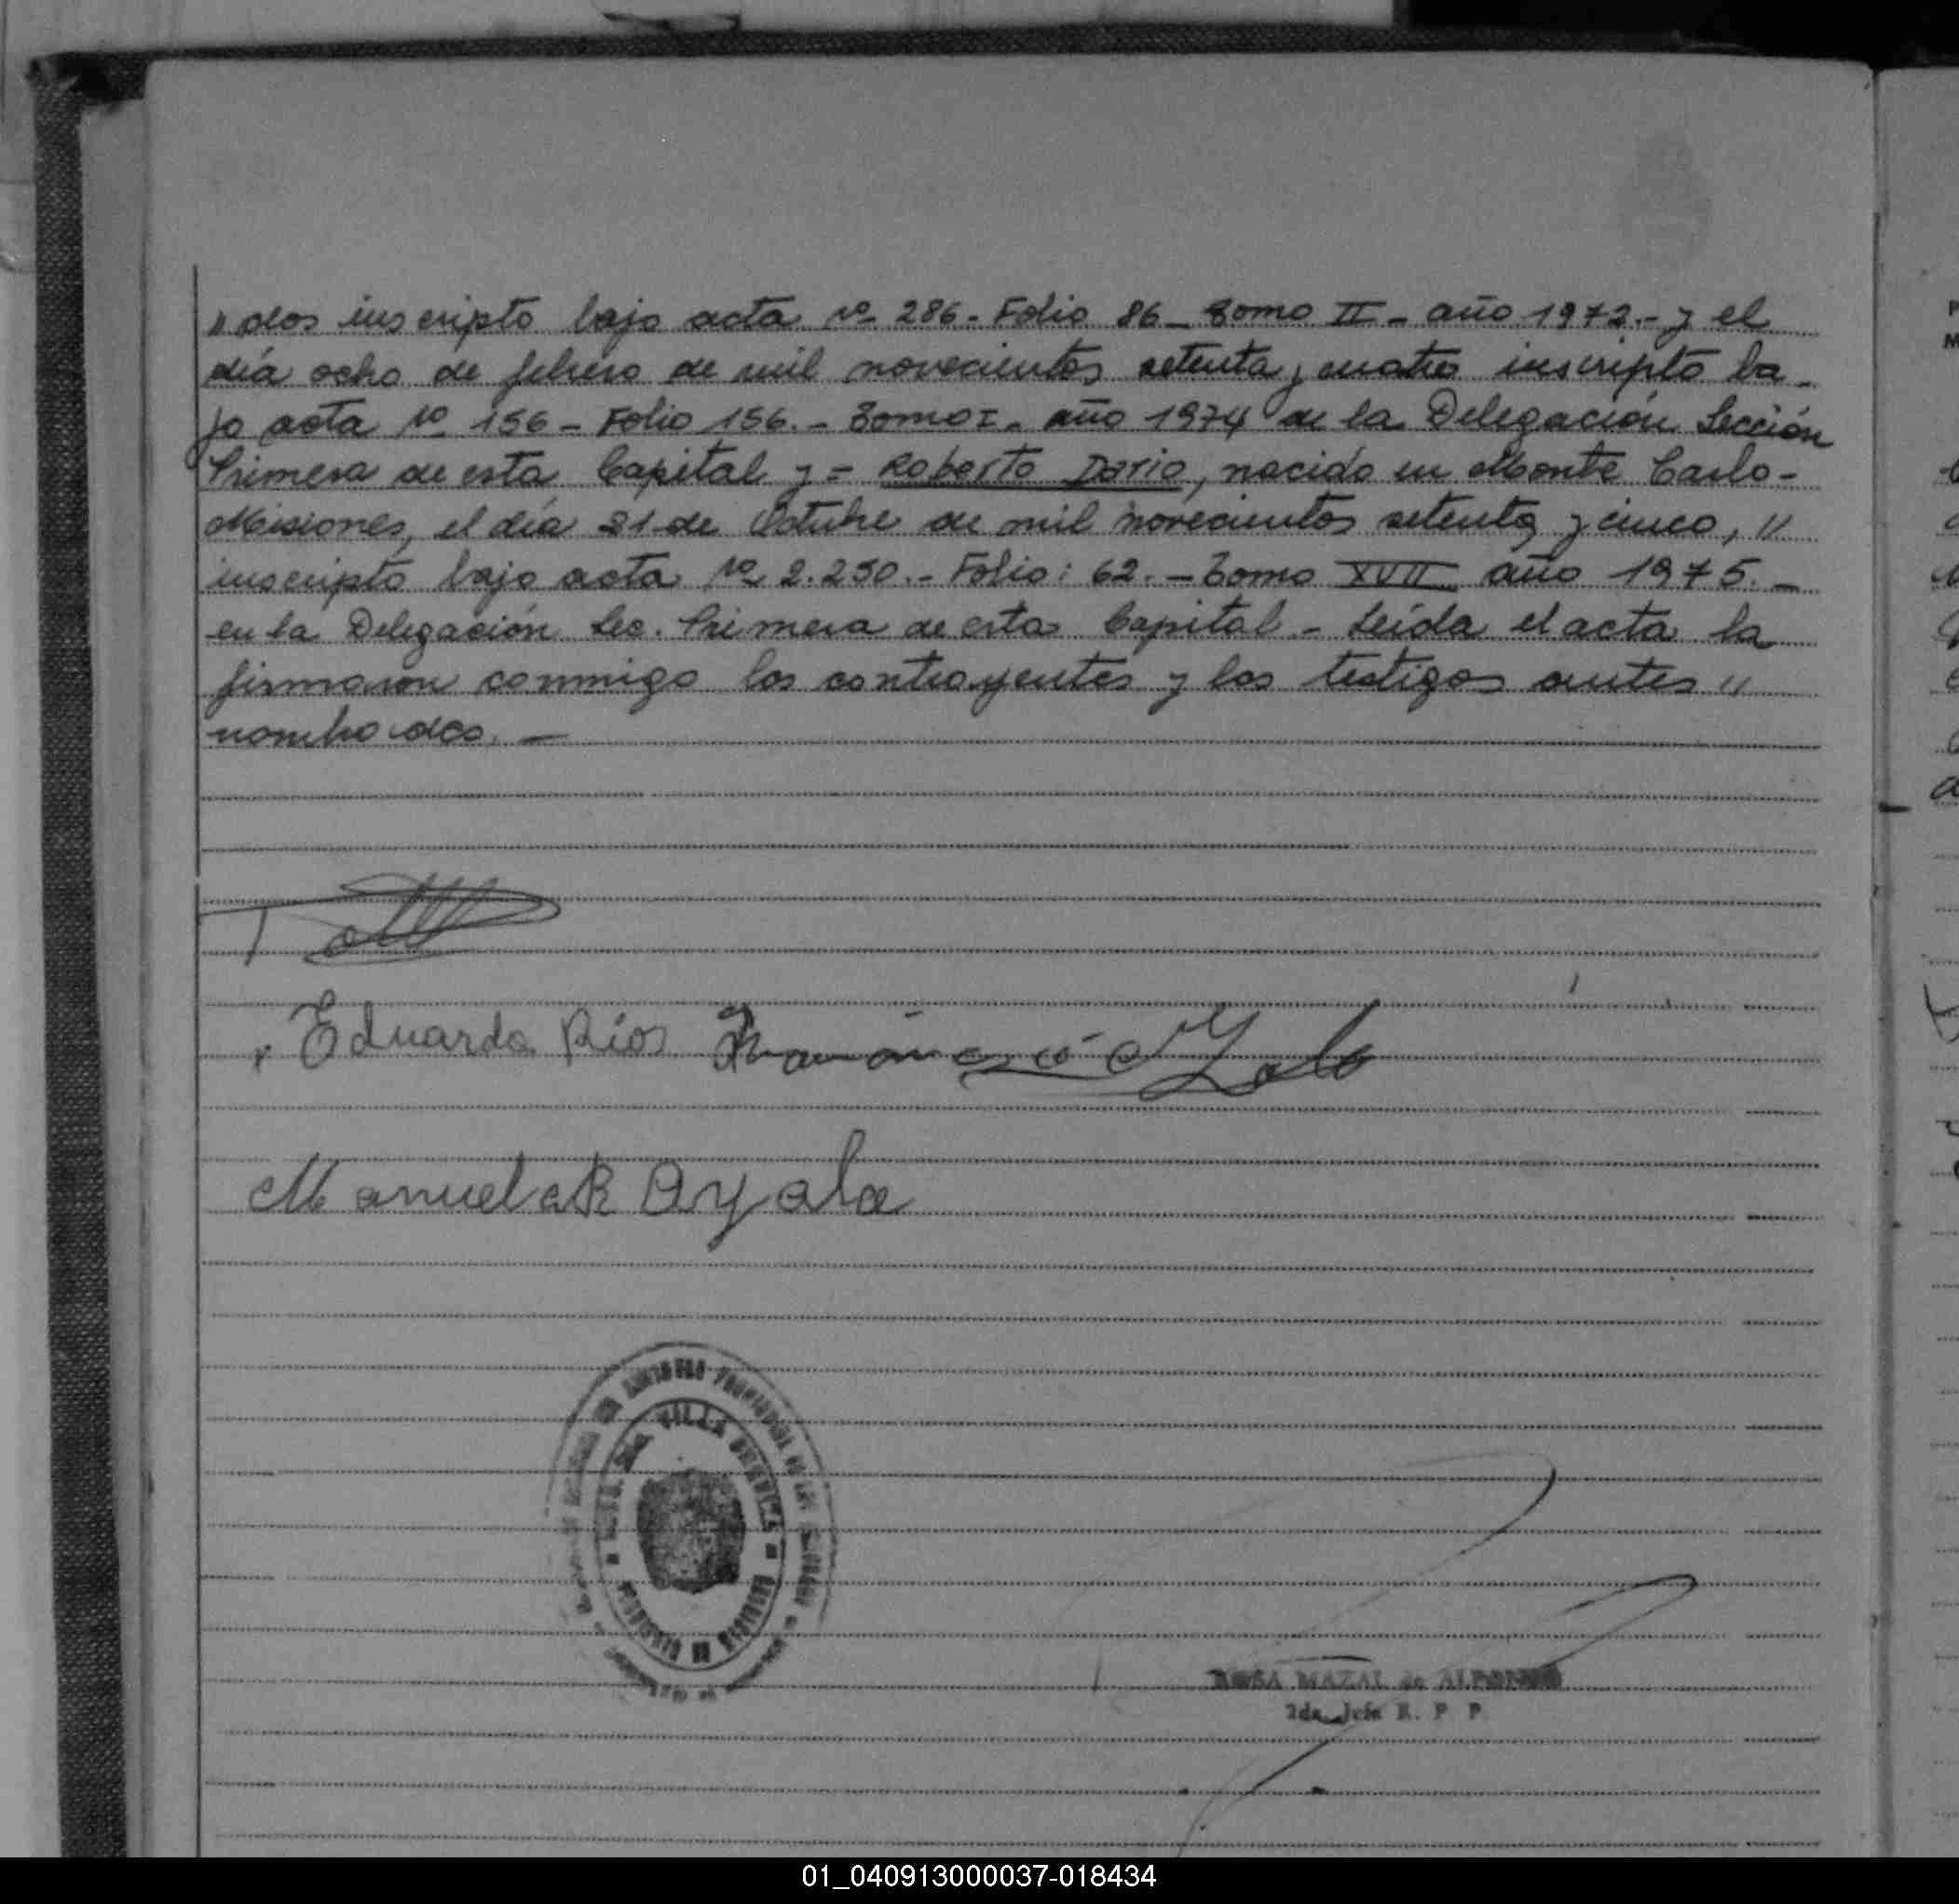 "dos inscripto bajo acta Nº 286 - Folio 86 - Tomo II - año 1972.- y el
día ocho de febrero de mil novecientos setenta y cuatro inscripto ba-
jo acta Nº 156 - Folio 156. - Tomo I - año 1974 de la Delegación Sección
Primera de esta Capital y = Roberto Dario, nacido en Monte Carlo -
Misiones, el día 21 de Octubre de mil novecientos setenta y cinco, "
inscripto bajo acta Nº 2.250. - Folio: 62. - Tomo XVII año 1975. -
en la Delegación Sec. Primera de esta Capital - Leída el acta la
firmaron conmigo los contrayentes y los testigos antes "
nombrados. -
Eduardo Ríos
Manuela R Ayala
VILLA
ROSA MAZAL de ALFONSO
2da. Jefe R. P P
01_040913000037-018434